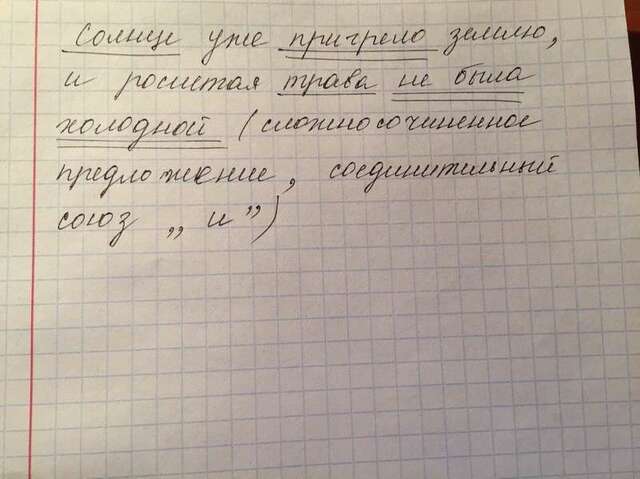 Солнце уже пригрело землю,
и росистая трава не была
холодной (сложносочиненное
предложение, соединительный
союз „ и ”)